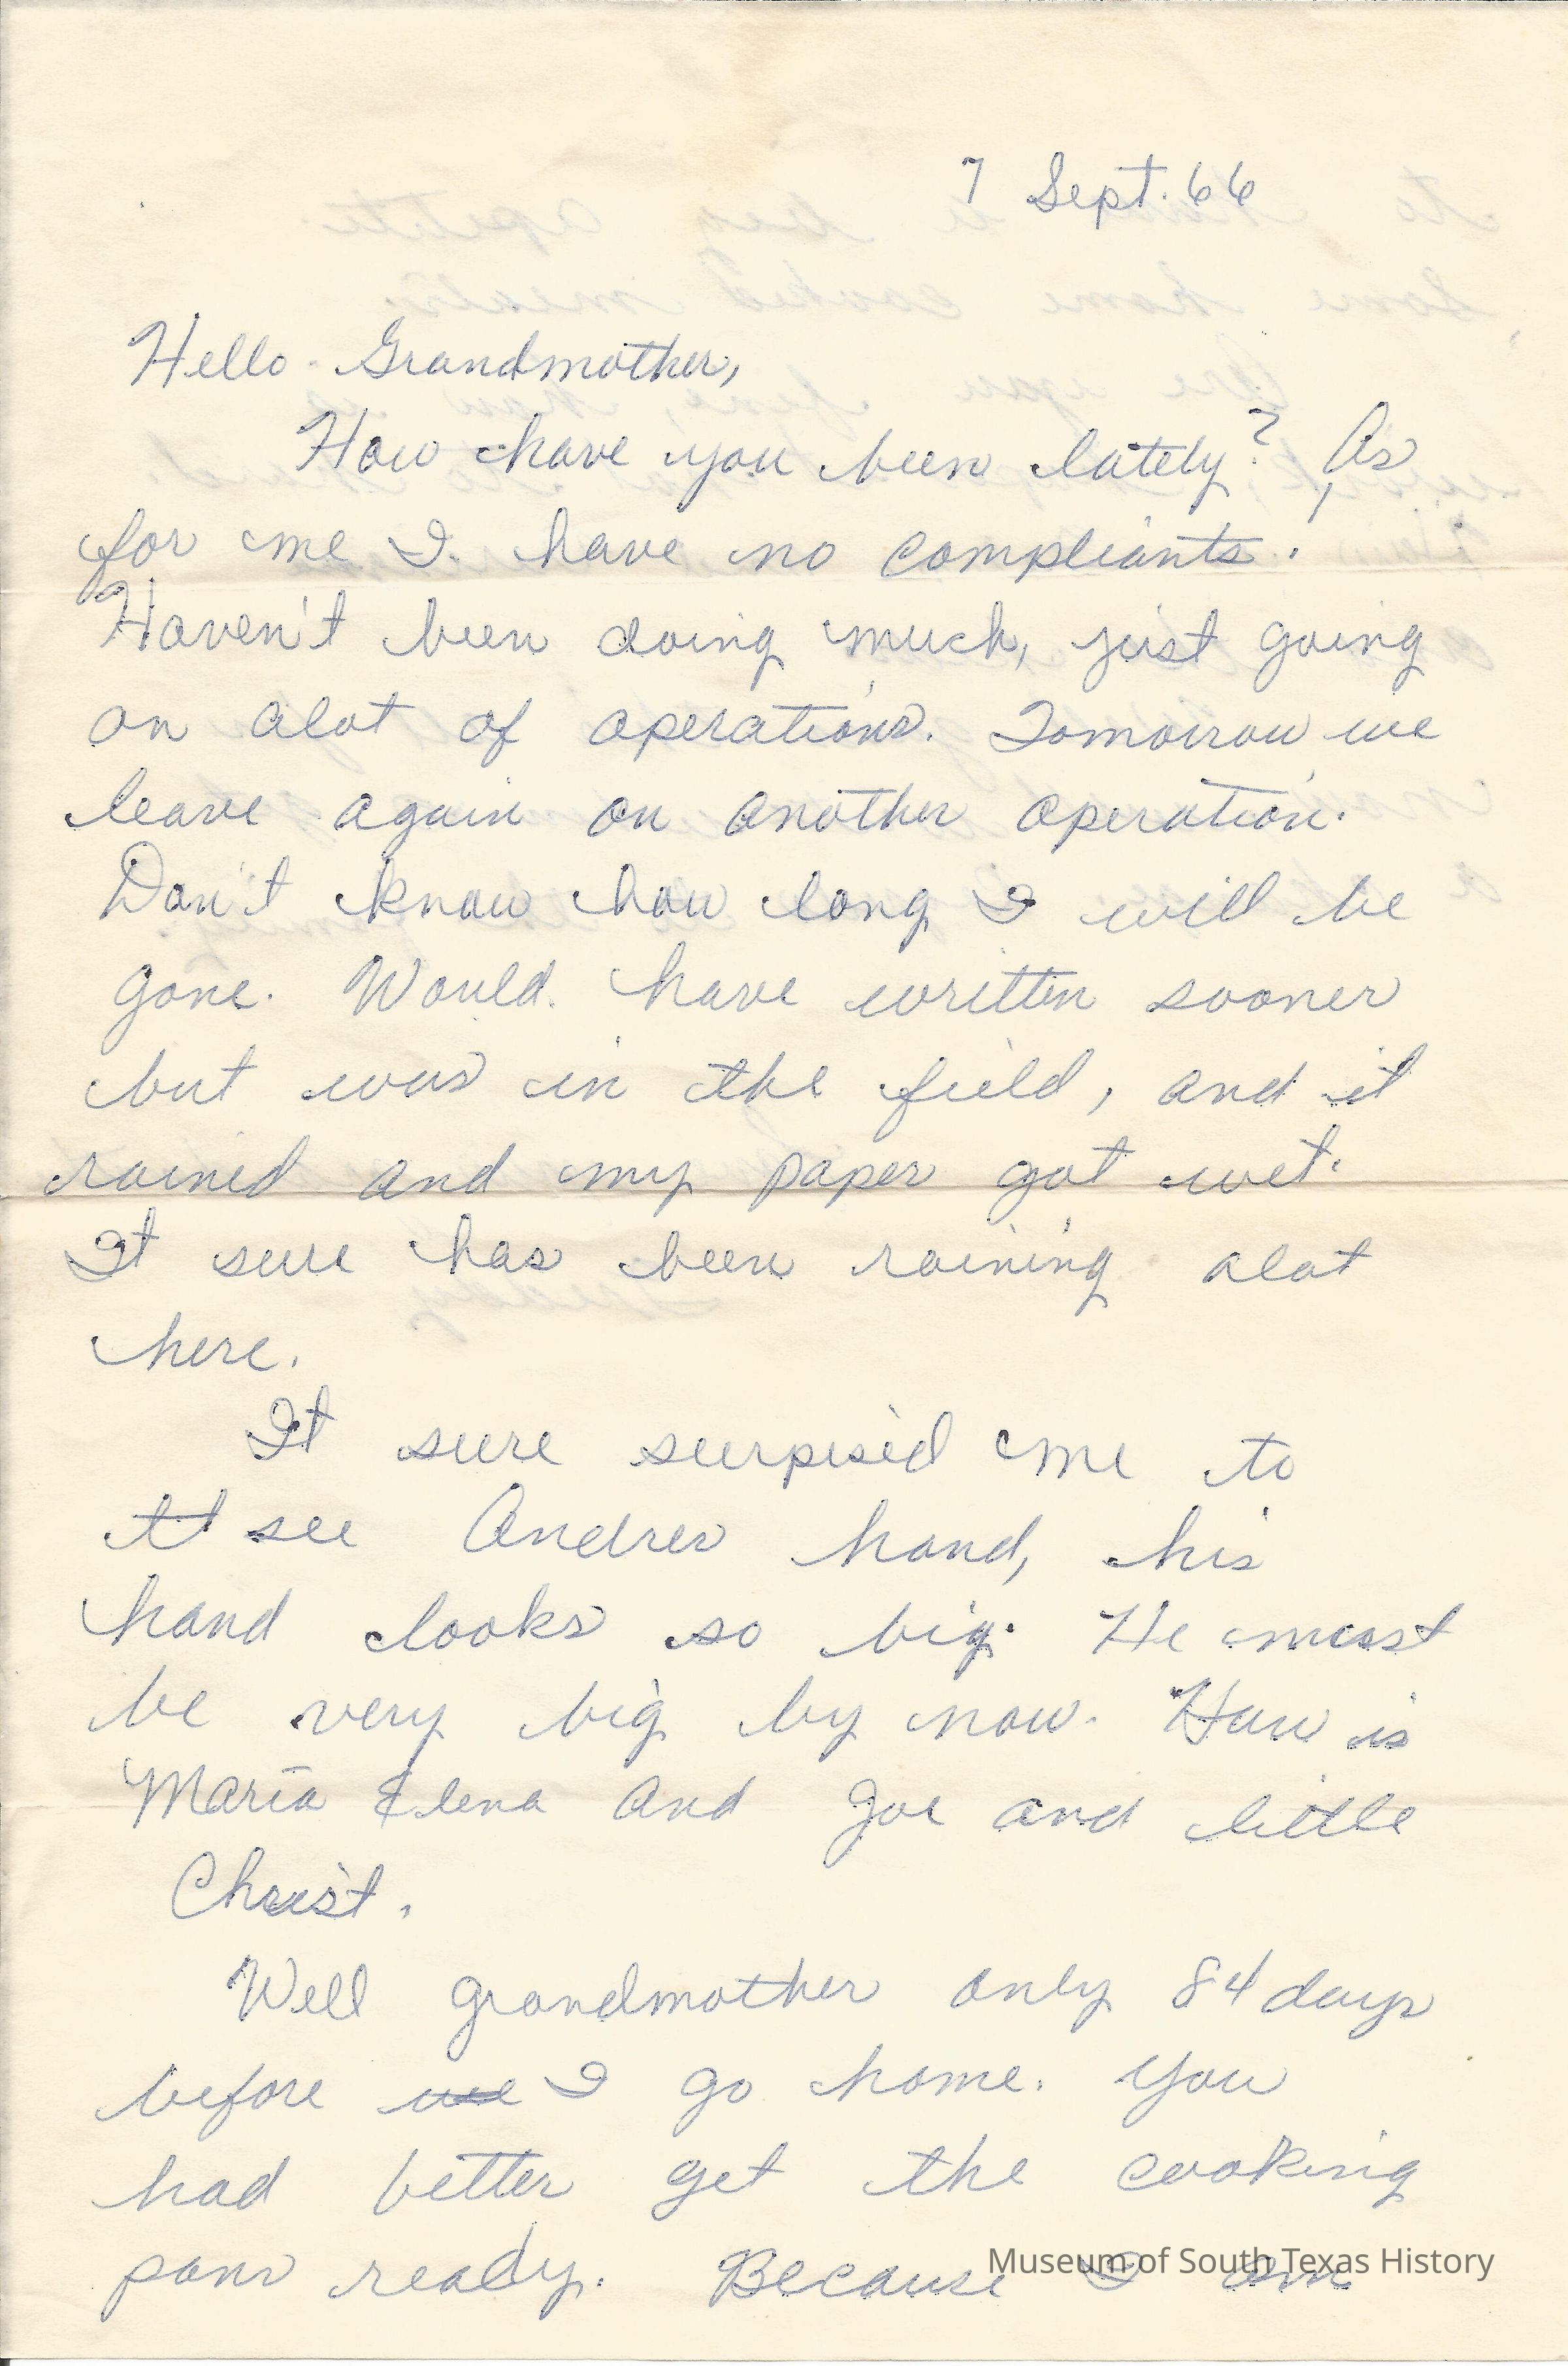 7 Sept. 66
Hello Grandmother,
How have you been lately? As
for me I have no compliants.
Haven't been doing much, just going
on alot of operations. Tomorrow we
leave again on another operation.
Don't know how long I will be
gone. Would have written sooner
but was in the field, and it
rained and my paper got wet.
It sure has been raining alot
here.
It sure surpised me to
see Andres hand, his
hand looks so big. He must
be very big by now. How is
Maria Elena and Joe and little
Christ.
Well grandmother only 84 days
before we I go home. You
had better get the cooking
pans ready. Because I am
Museum of South Texas History